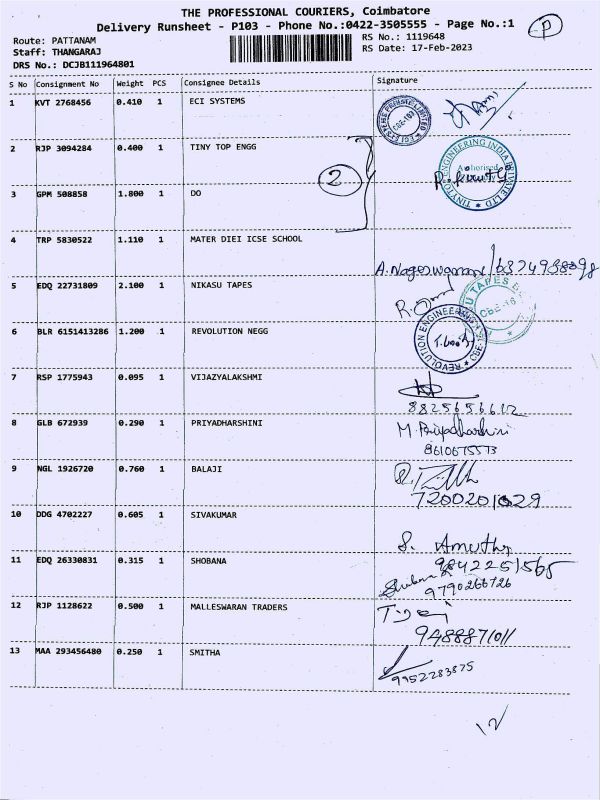 THE PROFESSIONAL COURIERS, Coimbatore
Delivery Runsheet - P103 - Phone No.:0422-3505555 - Page No.:1
P
Route: PATTANAM
RS No.: 1119648
Staff: THANGARAJ
RS Date: 17-Feb-2023
DRS No.: DCJB111964801
S No Consignment No Weight PCS Consignee Details Signature
1 KVT 2768456 0.410 1 ECI SYSTEMS
CBE-103
2 RJP 3094284 0.400 1 TINY TOP ENGG
ENGINEERING INDIA PRIVATE LTD
Authorised
2
3 GPM 508858 1.800 1 DO
4 TRP 5830522 1.110 1 MATER DIEI ICSE SCHOOL
5 EDQ 22731809 2.100 1 NIKASU TAPES
TAPES
6 BLR 6151413286 1.200 1 REVOLUTION NEGG
REVOLUTION ENGINEERING
7 RSP 1775943 0.095 1 VIJAZYALAKSHMI
8825656612
8 GLB 672939 0.290 1 PRIYADHARSHINI
M. Priyadharshini
8610675573
9 NGL 1926720 0.760 1 BALAJI
7200201029
10 DDG 4702227 0.605 1 SIVAKUMAR
S. Amutha
9842251565
11 EDQ 26330831 0.315 1 SHOBANA
Shobana
9790266726
12 RJP 1128622 0.500 1 MALLESWARAN TRADERS
9488871011
13 MAA 293456480 0.250 1 SMITHA
9952283875
12